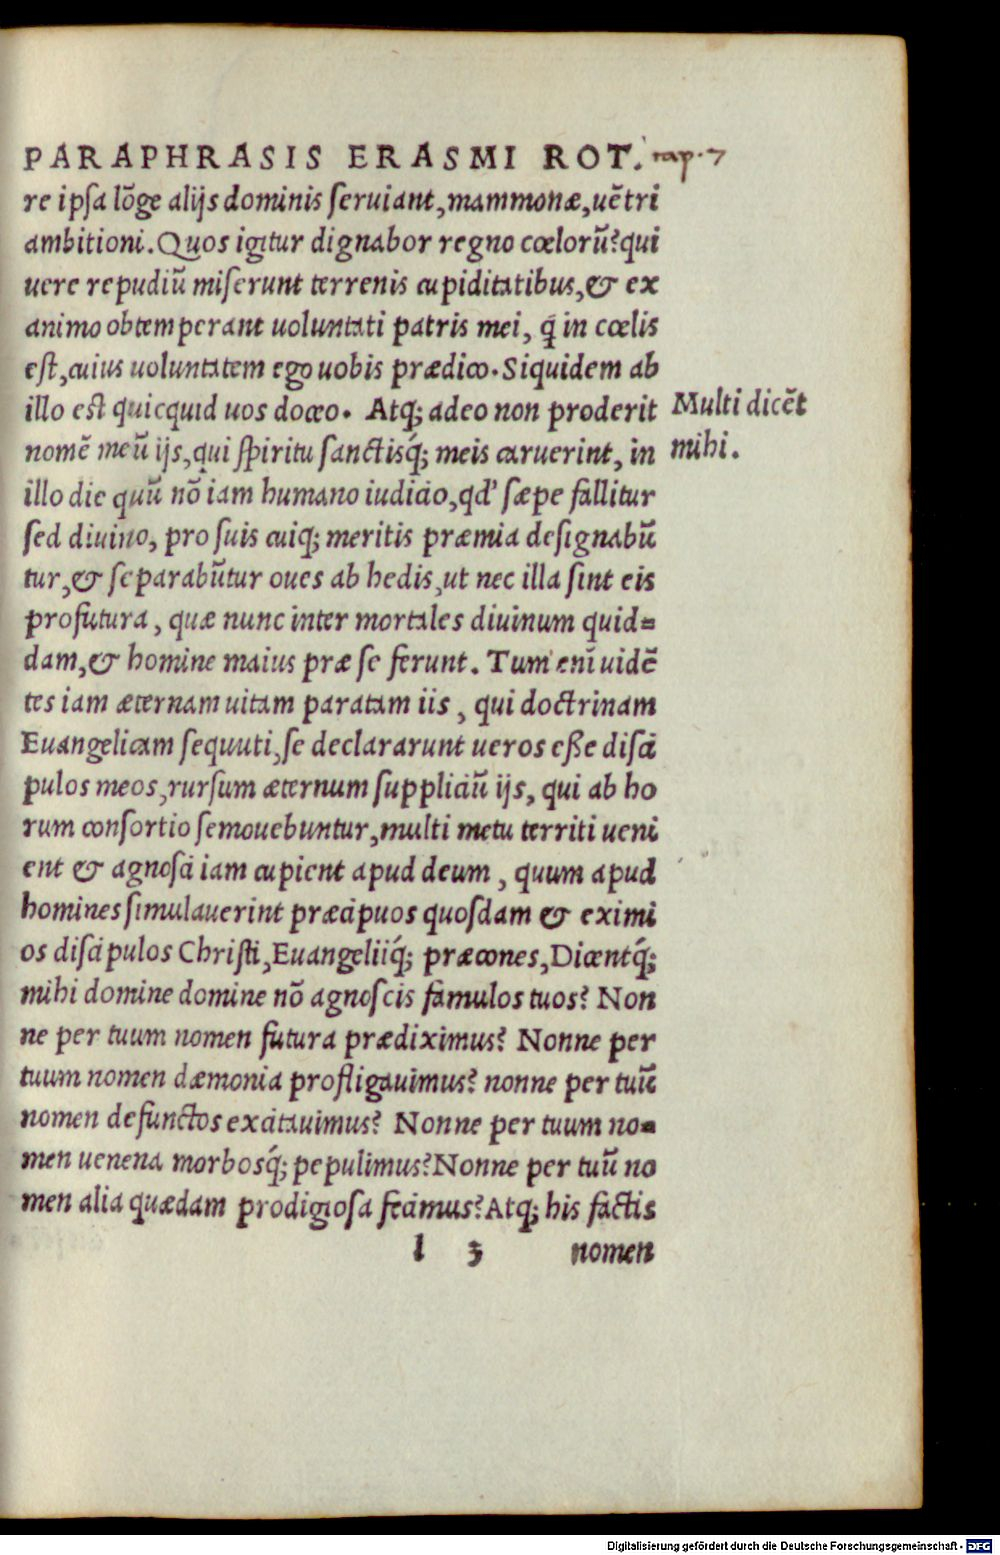 PARAPHRASIS ERASMI ROT. cap. 7
re ipſa lõge alijs dominis ſeruiant, mammonæ, uẽtri
ambitioni. Quos igitur dignabor regno cœlorũ? qui
uere repudiũ miſerunt terrenis cupiditatibus, & ex
animo obtemperant uoluntati patris mei, q̃ in cœlis
eſt, cuius uoluntatem ego uobis prædico. Siquidem ab
illo eſt quicquid uos doceo. Atq; adeo non proderit
Multi dicẽt
nomẽ meũ ijs, qui ſpiritu ſanctisq́; meis caruerint, in
mihi.
illo die quũ nõ iam humano iudicio, qd' ſæpe fallitur
ſed diuino, pro ſuis cuiq; meritis præmia deſignabũ
tur, & ſeparabũtur oues ab hedis, ut nec illa ſint eis
profutura, quæ nunc inter mortales diuinum quid=
dam, & homine maius præ ſe ferunt. Tum enĩ uidẽ
tes iam æternam uitam paratam iis, qui doctrinam
Euangelicam ſequuti, ſe declararunt ueros eſſe diſci
pulos meos, rurſum æternum ſuppliciũ ijs, qui ab ho
rum conſortio ſemouebuntur, multi metu territi ueni
ent & agnoſci iam cupient apud deum, quum apud
homines ſimulauerint præcipuos quoſdam & eximi
os diſcipulos Chriſti, Euangeliiq́; præcones, Dicentq́;
mihi domine domine nõ agnoſcis famulos tuos? Non
ne per tuum nomen futura prædiximus? Nonne per
tuum nomen dæmonia profligauimus? nonne per tuũ
nomen defunctos excitauimus? Nonne per tuum no=
men uenena morbosq́; pepulimus? Nonne per tuũ no
men alia quædam prodigioſa fecimus? Atq; his factis
l 3 nomen
Digitalisierung gefördert durch die Deutsche Forschungsgemeinschaft - DFG